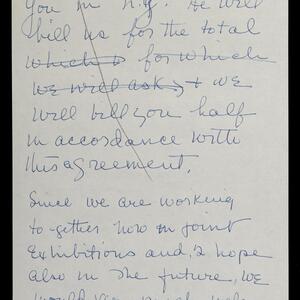 you in N.Y. He will
bill us for the total
which is for which
we will ask, + we
will bill you half
in accordance with
this agreement.
Since we are working
to-gether now in joint
exhibitions and, I hope
also in the future, we
would